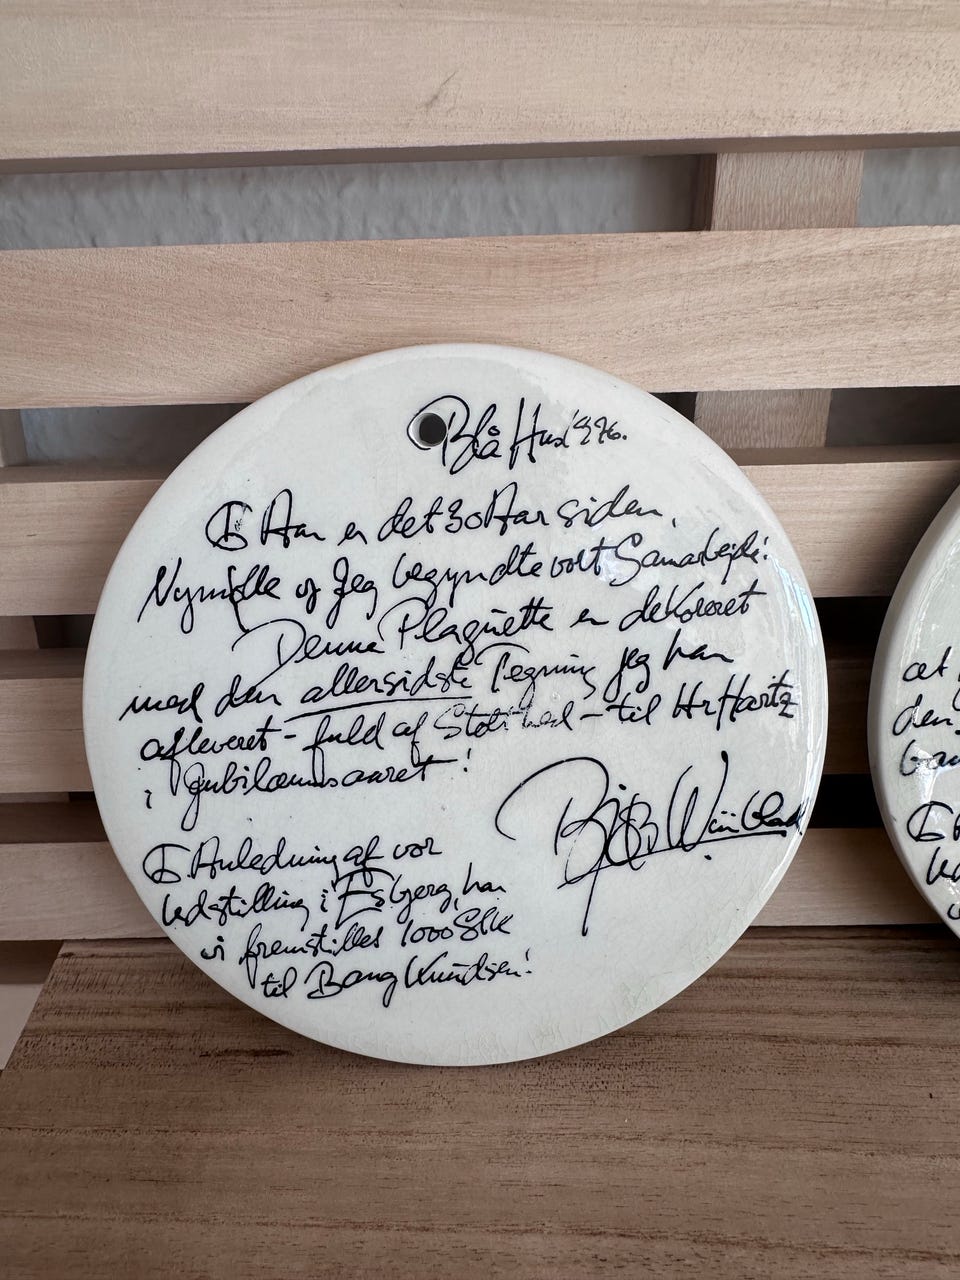 Blå Hus 1976.
I Aar er det 30 Aar siden,
Nymølle og Jeg begyndte vort Samarbejde!
Denne Plaquette er dekoreret
med den allersidste Tegning jeg har
afleveret - fuld af Stolthed - til Hr Hartz
i Jubilæumsaaret!
Bjørn Wiinblad
I Anledning af vor
Udstilling i Esbjerg, har
vi fremstillet 1000 Stk
til Bang Knudsen!
at
den